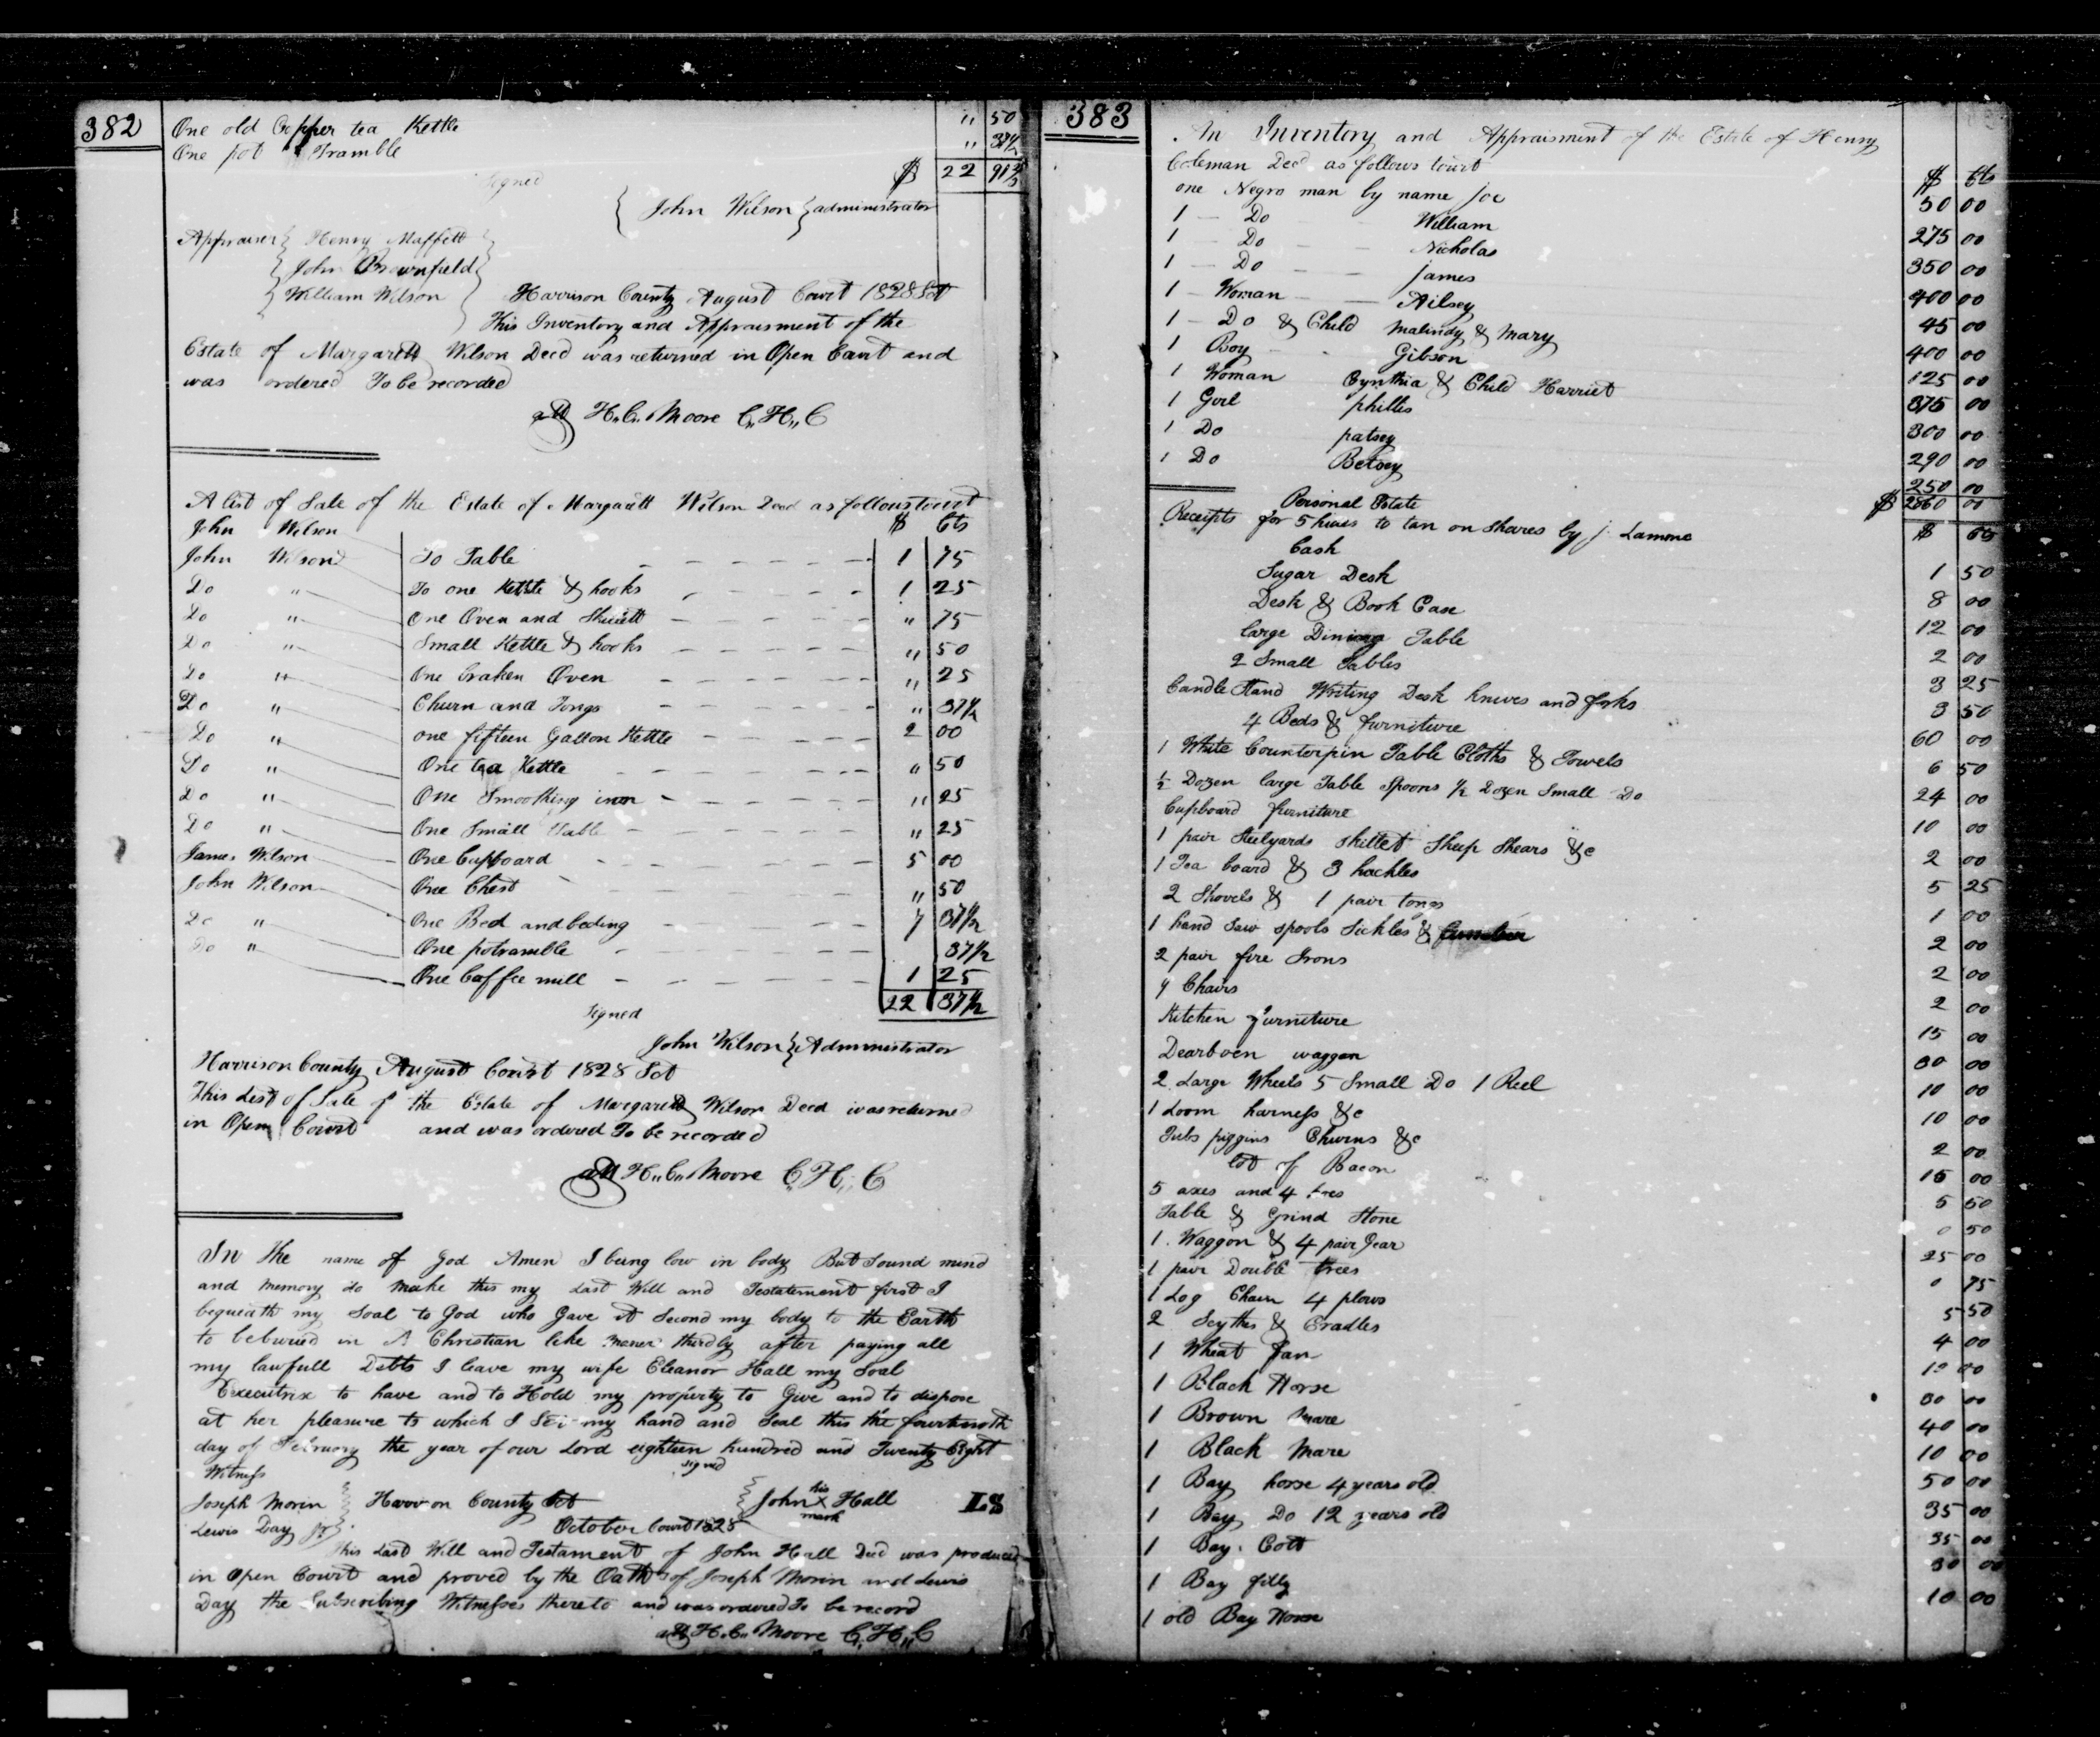 382
One old Copper tea Kettle " 50
One pot Tramble " 37½
$ 22 91
Signed
John Wilson } administrator
Appraiser { Henry Maffett
John Brownfield
William Wilson
Harrison County August Court 1828 Sct
This Inventory and Appraisment of the
Estate of Margarett Wilson Decd was returned in Open Cout and
was ordered To be recorded
att H. C. Moore C. H. C
A list of Sale of the Estate of Margarett Wilson Decd as follows towit
John Wilson $ Cts
John Wilson To Table 1 75
Do " To one Kettle & hooks 1 25
Do " One Oven and Skilett " 75
Do " Small Kettle & hooks " 50
Do " One braken Oven " 25
Do " Churn and Tongs " 37½
Do " one fifteen Gallon Kettle 2 00
Do " One tea Kettle " 50
Do " One Smoothing iron " 25
Do " One Small Table " 25
James Wilson One Cupboard 5 00
John Wilson One Chest " 50
Do " One Bed and beding 7 37½
Do " One potramble 37½
One Caffee mill 1 25
22 37½
Signed
John Wilson } Administrator
Harrison County August Court 1828 Sct
This List of Sale of the Estate of Margarett Wilson Decd was returned
in Open Court and was ordered To be recorded
att H. C. Moore C. H. C
In the name of God Amen I being low in body But Sound mind
and memory do make this my Last Will and Testatement first I
bequeath my Soal to God who Gave it Second my body to the Earth
to be buried in A Christian like maner thirdly after paying all
my lawfull Debts I leave my wife Eleanor Hall my Soal
Executrix to have and to Hold my property to Give and to dispose
at her pleasure to which I Set my hand and Seal this the fourteenth
day of February the year of our Lord eighteen hundred and Twenty Eight
Witness signed
Joseph Morin } Harrison County Sct { John his X mark Hall LS
Lewis Day Jr } October Court 1828
This Last Will and Testament of John Hall Decd was produced
in Open Court and proved by the Oaths of Joseph Morin and Lewis
Day the Subscribing Witnesses thereto and was ordered To be record
att H. C. Moore C. H. C
383
An Inventory and Appraisment of the Estate of Henry
Coleman Decd as follows towit $ Cts
one Negro man by name Joe 50 00
1 Do William 275 00
1 Do Nicholas 350 00
1 Do James 400 00
1 Woman Ailsey 45 00
1 Do & Child Malindy & Mary 400 00
1 Boy Gibson 125 00
1 Woman Cynthia & Child Harriet 375 00
1 Girl phillis 300 00
1 Do patsey 290 00
1 Do Betsey 250 00
Personal Estate $ 2860 00
Receipts for 5 hives to tan on Shares by J. Lamme $ Cts
Cash 1 50
Sugar Desk 8 00
Desk & Book Case 12 00
large Dining Table 2 00
2 Small Tables 3 25
Candle Stand Writing Desk knives and forks 3 50
4 Beds & furniture 60 00
1 White Counterpin Table Cloths & Towels 6 50
½ Dozen large Table Spoons ½ Dozen Small Do 24 00
Cupboard furniture 10 00
1 pair Steelyards Skillet Sheep Shears &c 2 00
1 Tea board & 3 hackles 5 25
2 Shovels & 1 pair tongs 1 00
1 hand Saw spools Sickles & 2 00
2 pair fire Irons 2 00
4 Chairs 2 00
Kitchen furniture 15 00
Dearboen waggon 30 00
2 Large Wheels 5 Small Do 1 Reel 10 00
1 Loom harness &c 10 00
Tubs piggins Churns &c 2 00
lot of Bacon 15 00
5 axes and 4 hoes 5 50
Table & Grind Stone 0 50
1 Waggon & 4 pair Gear 25 00
1 pair Double trees 0 75
1 Log Chain 4 plows 5 50
2 Scythes & Cradles 4 00
1 Wheat fan 10 00
1 Black Horse 30 00
1 Brown Mare 40 00
1 Black Mare 10 00
1 Bay horse 4 years old 50 00
1 Bay Do 12 years old 35 00
1 Bay Colt 35 00
1 Bay filly 30 00
1 old Bay Horse 10 00